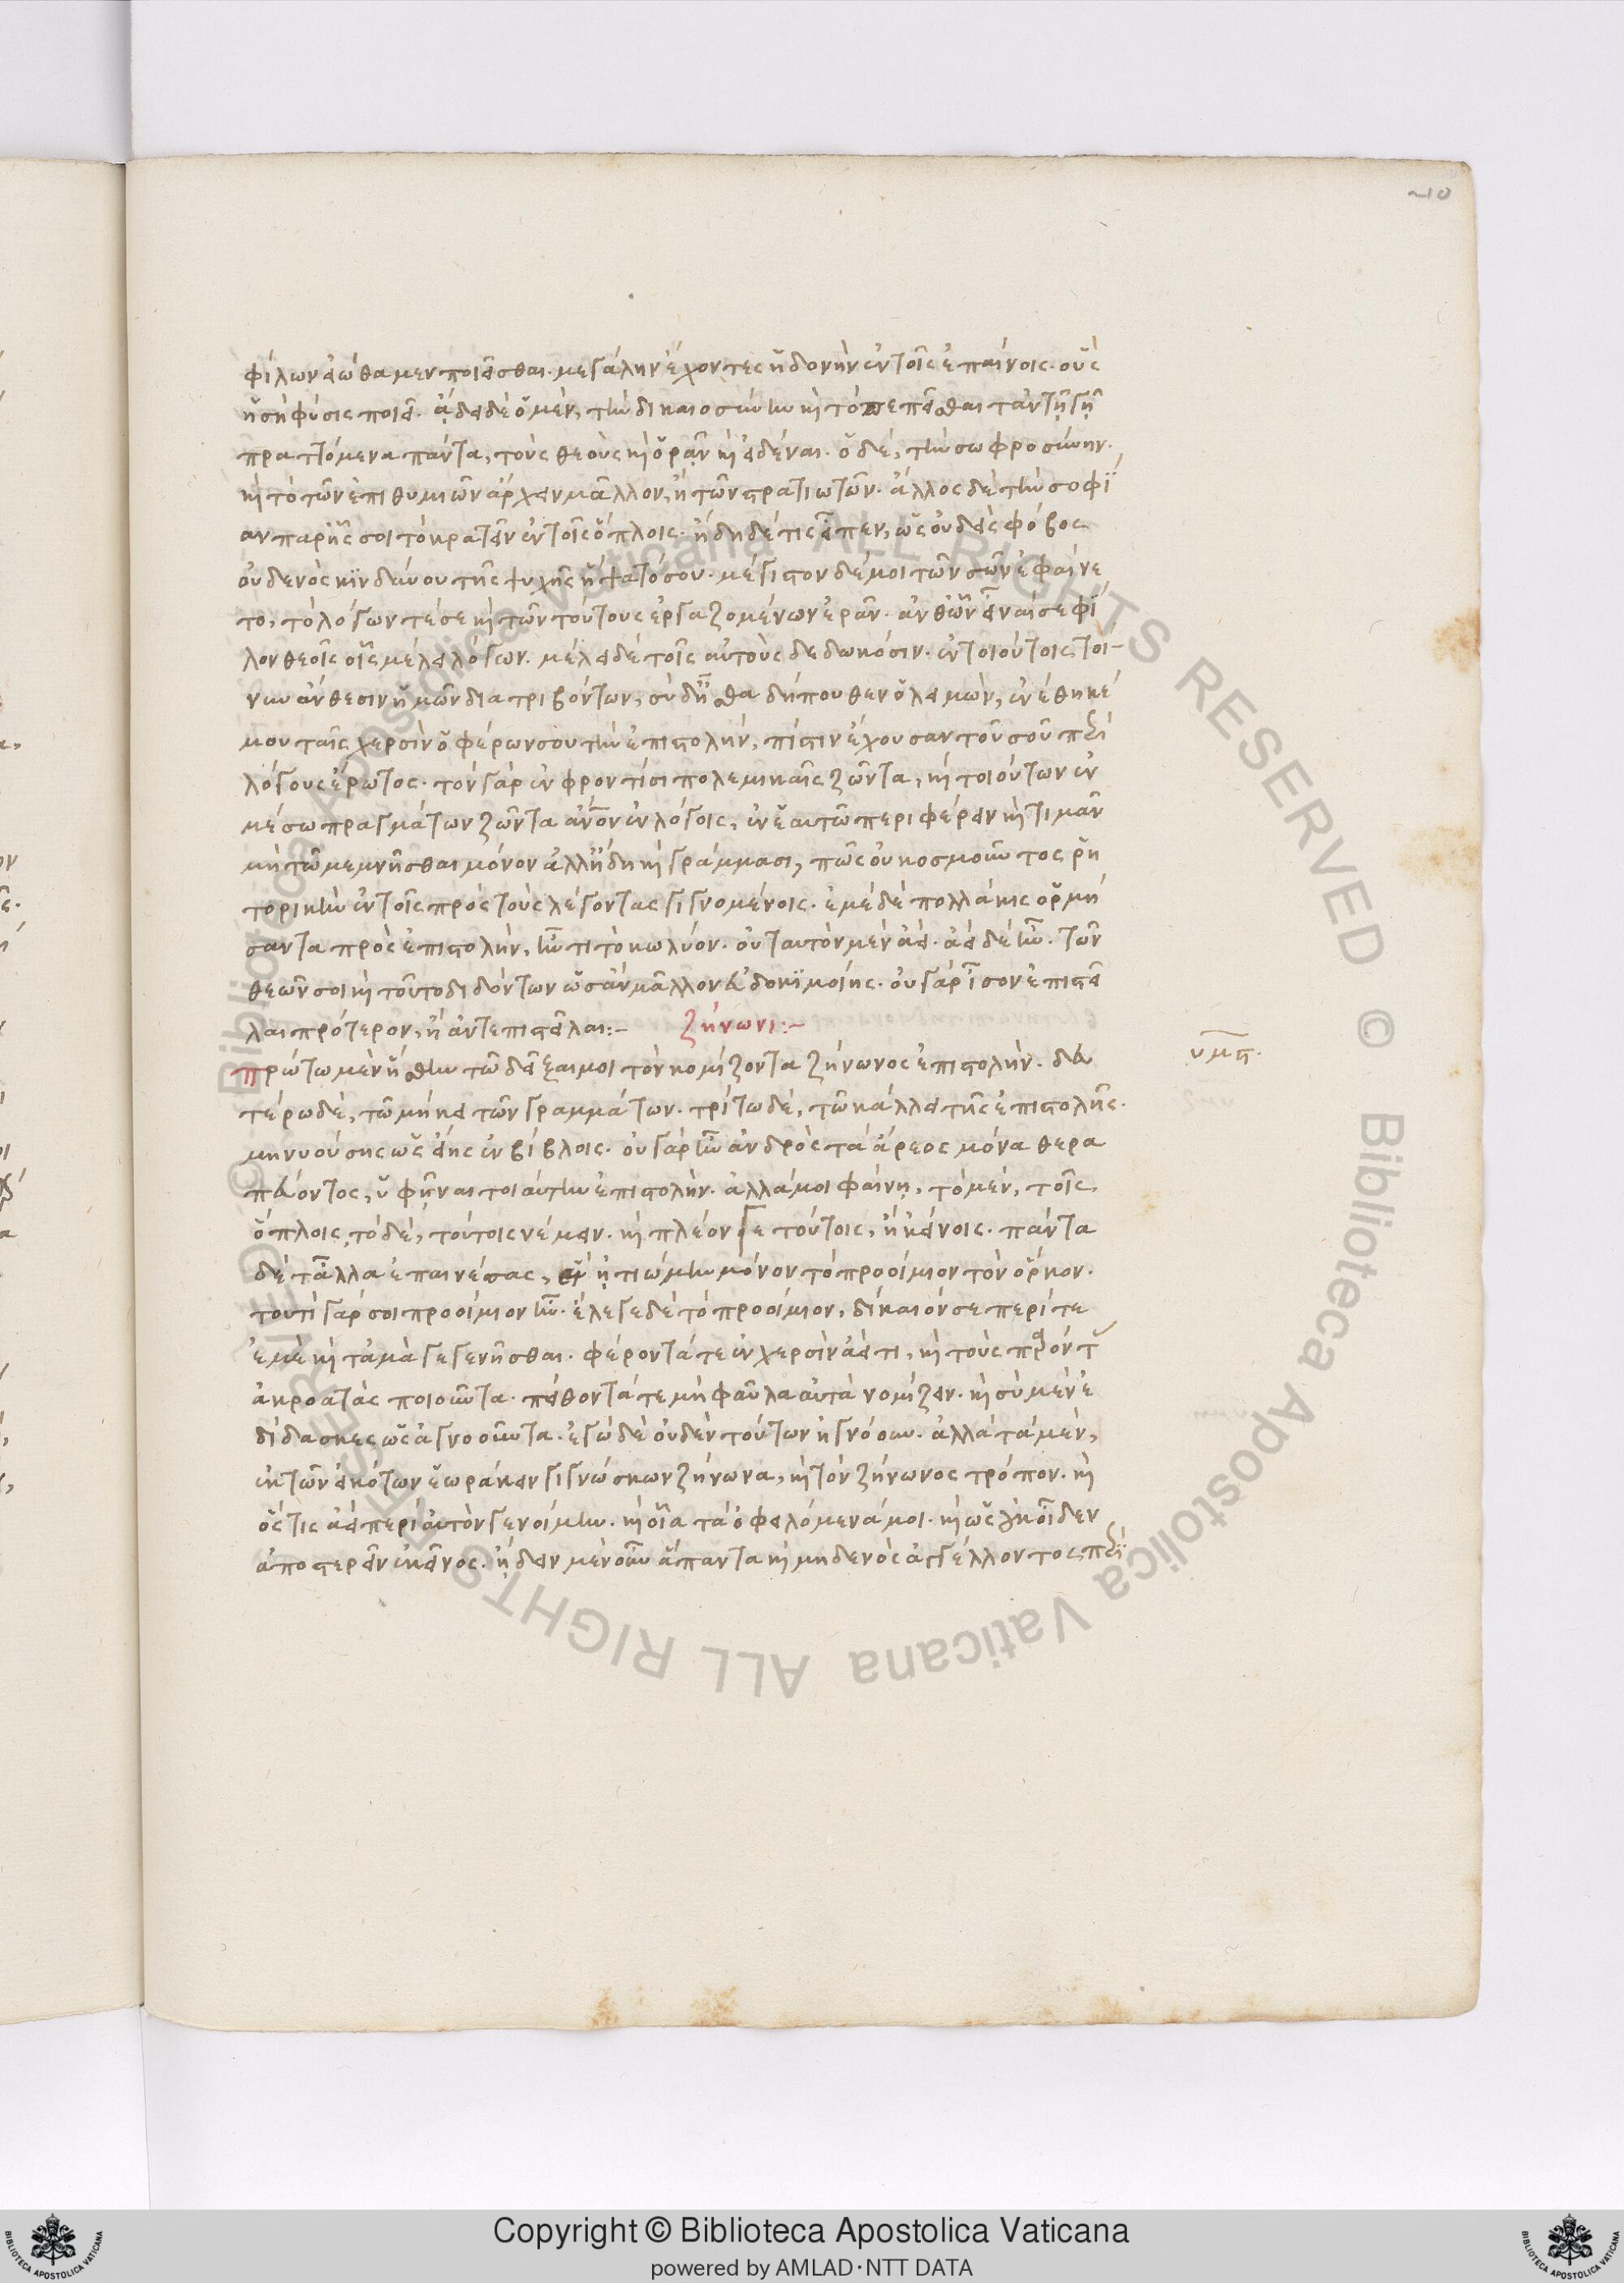 φίλων εἰώθαμεν ποιεῖσθαι. μεγάλην ἔχοντες ἡδονὴν ἐν τοῖς ἐπαίνοις. οὓς
ἡ σὴ φύσις ποιεῖ. ᾖδε δὲ ὁ μὲν, τὴν δικαιοσύνην καὶ τὸ πεπεῖσθαι τἀν τῇ γῇ
πραττόμενα πάντα, τοὺς θεοὺς καὶ ὁρᾷν καὶ εἰδέναι. ὁ δέ, τὴν σωφροσύνην.
καὶ τὸ τῶν ἐπιθυμιῶν ἄρχειν μᾶλλον, ἢ τῶν στρατιωτῶν. ἄλλος δὲ τὴν σοφί
αν παρ' ἧς σοι τὸ κρατεῖν ἐν τοῖς ὅπλοις. ἤδη δέ τις εἶπεν, ὡς οὐδεὶς φόβος
οὐδενὸς κινδύνου τῆς ψυχῆς ἥψατό σου. μέγιστον δέ μοι τῶν σῶν ἐφαίνε
το, τὸ λόγων τέ σε καὶ τῶν τούτους ἐργαζομένων ἐρᾶν. ἀνθ' ὧν εἶναί σε φί
λον θεοῖς οἷς μέλει λόγων. μέλει δὲ τοῖς αὐτοὺς δεδωκόσιν. ἐν τοιούτοις τοί-
νυν ἄνθεσιν ἡμῶν διατριβόντων, σὺ δ' ἦσθα δήπουθεν ὁ λειμών, ἐνέθηκέ
μου ταῖς χερσὶν ὁ φέρων σου τὴν ἐπιστολήν, πίστιν ἔχουσαν τοῦ σοῦ περὶ
λόγους ἔρωτος. τὸν γὰρ ἐν φροντίσι πολεμικαῖς ζῶντα, καὶ τοιούτων ἐν
μέσω πραγμάτων ζῶντα ἄνον ἐν λόγοις, ἐν ἑαυτῶ περιφέρειν καὶ τιμᾶν
μὴ τῶ μεμνῆσθαι μόνον ἀλλ' ἤδη καὶ γράμμασι, πῶς οὐ κοσμοῦντος ῥη
τορικὴν ἐν τοῖς πρὸς τοὺς λέγοντας γιγνομένοις. ἐμὲ δὲ πολλάκις ὁρμή
σαντα πρὸς ἐπιστολὴν, ἦν τι τὸ κωλύον. οὐ ταυτὸν μὲν ἀεί. ἀεὶ δὲ ἦν. τῶν
θεῶν σοι καὶ τοῦτο διδόντων ὡς ἂν μᾶλλον εὐδοκιμοίης. οὐ γὰρ ἴσον ἐπιστεῖ
λαι πρότερον, ἢ ἀντεπιστεῖλαι:– Ζήνωνι:–
πρώτω μὲν ἥσθην τῶ δεῖξαί μοι τὸν κομίζοντα ζήνωνος ἐπιστολήν. δευ
τέρω δὲ, τῶ μήκει τῶν γραμμάτων. τρίτω δέ, τῶ κάλλει τῆς ἐπιστολῆς.
μηνυούσης ὡς εἴης ἐν βίβλοις. οὐ γὰρ ἦν ἀνδρὸς τὰ ἄρεος μόνα θερα
πεύοντος, ὑφῆναι τοιαύτην ἐπιστολήν. ἀλλά μοι φαίνη, τὸ μέν, τοῖς
ὅπλοις, τὸ δέ, τούτοις νέμειν. καὶ πλέον γε τούτοις, ἢ 'κείνοις. πάντα
δὲ τἆλλα ἐπαινέσας, ᾐτιώμην μόνον τὸ προοίμιον τὸν ὅρκον.
τουτὶ γάρ σοι προοίμιον ἦν. ἔλεγε δὲ τὸ προοίμιον, δίκαιόν σε περί τε
ἐμὲ καὶ τἀμὰ γεγενῆσθαι. φέροντά τε ἐν χερσὶν ἀεί τι, καὶ τοὺς παρόντας
ἀκροατὰς ποιοῦντα. πείθοντά τε μὴ φαῦλα αὐτὰ νομίζειν. καὶ σὺ μὲν ἐ
δίδασκες ὡς ἀγνοοῦντα. ἐγὼ δὲ οὐδὲν τούτων ἠγνόουν. ἀλλὰ τὰ μέν,
ἐκ τῶν εἰκότων ἑωράκειν γιγνώσκων ζήνωνα, καὶ τὸν ζήνωνος τρόπον. καὶ
ὅστις ἀεὶ περὶ αὐτὸν γενοίμην. καὶ οἷα τὰ ὀφειλόμενά μοι. καὶ ὡς οὐκ οἶδεν
ἀποστερεῖν ἐκεῖνος. ᾔδειν μὲν οὖν ἅπαντα καὶ μηδενὸς ἀγγέλλοντος, περὶ
υμς.
Copyright © Biblioteca Apostolica Vaticana
powered by AMLAD·NTT DATA
© Biblioteca Apostolica Vaticana ALL RIGHTS RESERVED © Biblioteca Apostolica Vaticana ALL RIGHTS RESERVED
BIBLIOTECA APOSTOLICA VATICANA
BIBLIOTECA APOSTOLICA VATICANA